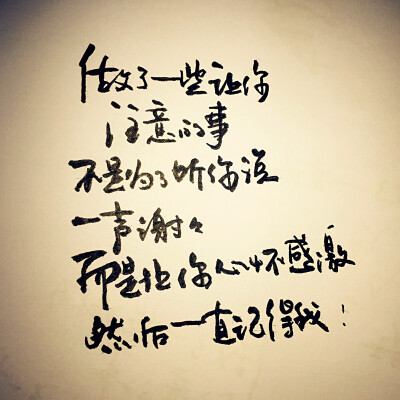 做了一些让你
注意的事
不是为了听你说
一声谢々
而是让你心怀感激
然后一直记得我!